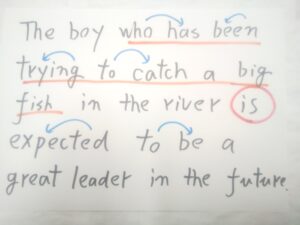 The boy who has been
trying to catch a big
fish in the river is
expected to be a
great leader in the future.